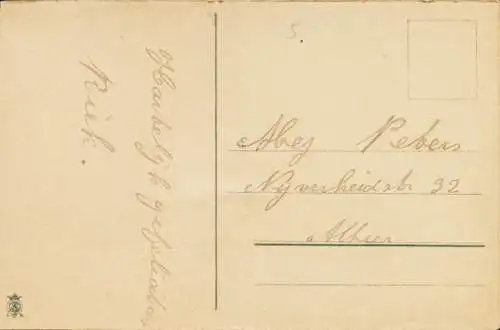 Hartelijk gefeliciteerd
Riek.
5.
Abey Peters
Nijverheidstr 32
Alhier